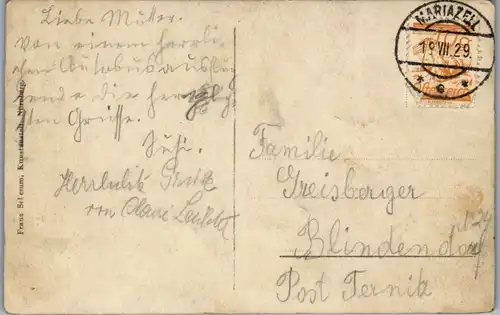 Liebe Mutter.
Von einem herrli-
chen Autobusausflug
sende die herzlig-
sten Grüsse.
Suhi.
Herzlichste Grüße
von
Franz Schemm, Kunstanstalt, Nürnberg
MARIAZELL
18.VII.29
Familie
Greisberger
Blindendorf
Post Ternitz